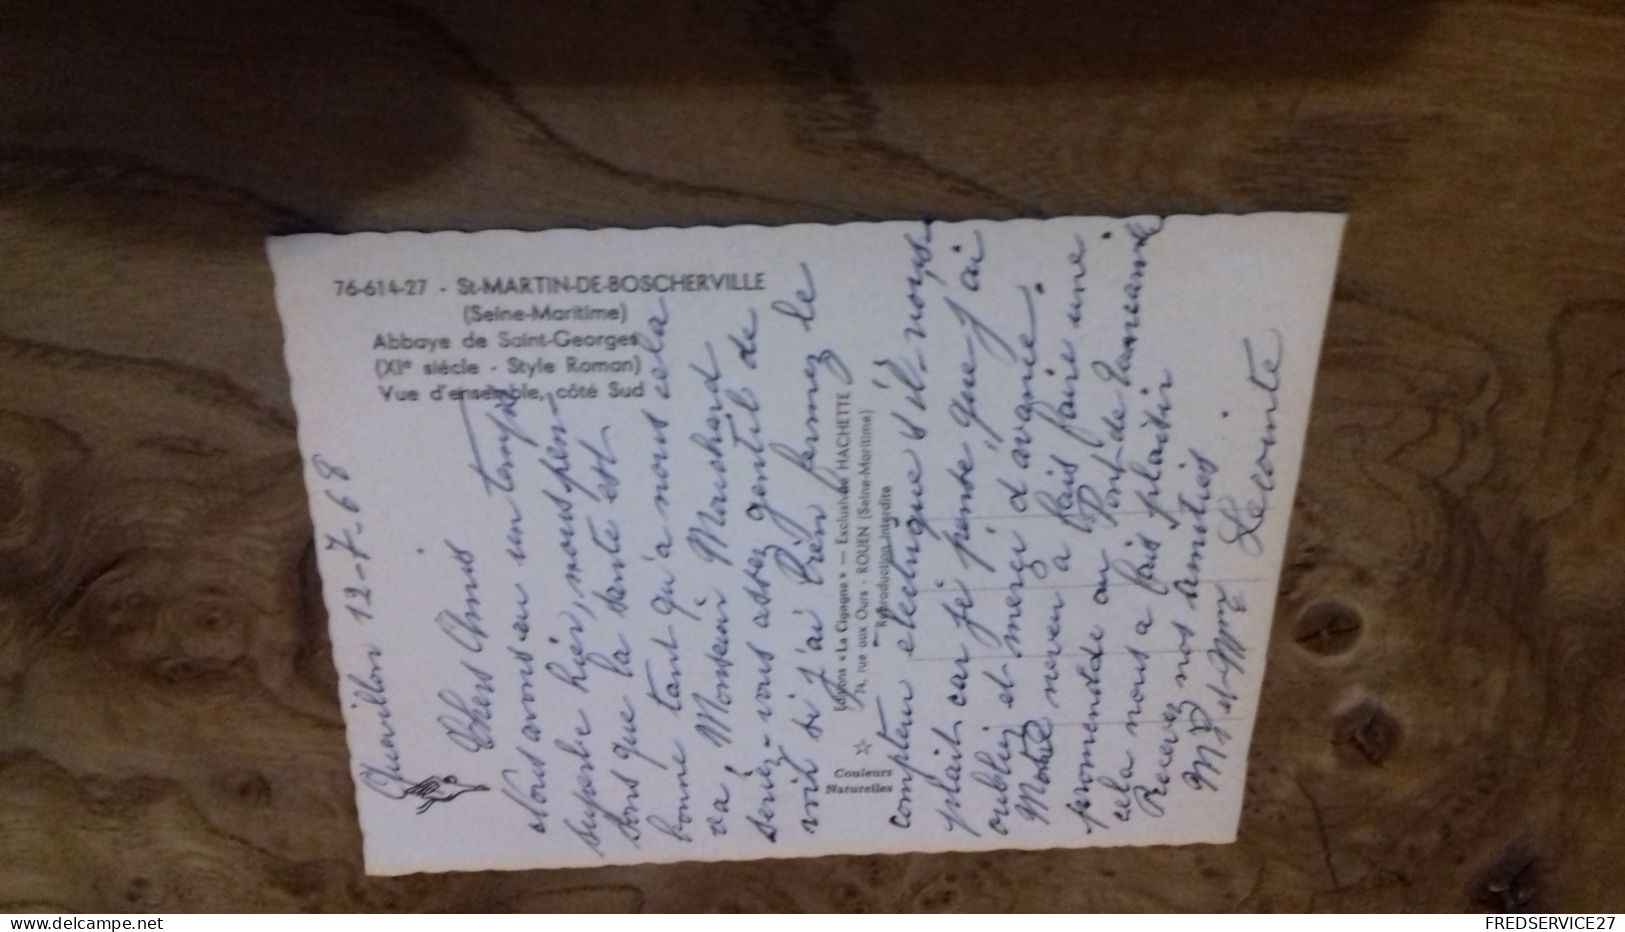 76-614-27 - St-MARTIN-DE-BOSCHERVILLE
(Seine-Maritime)
Abbaye de Saint-Georges
(XIe siècle - Style Roman)
Vue d'ensemble, côté Sud
Quevillon 12-7-68
Chers Amis
Nous avons eu un temps
superbe hier, nous pen-
sons que la santé est
bonne tant qu'à nous cela
va, Monsieur Mouchard
seriez-vous assez gentil de
voir si j'ai bien fermez le
Editions « La Cigogne » — Exclusivité HACHETTE
74, rue aux Ours - ROUEN (Seine-Maritime)
Reproduction interdite
Couleurs
Naturelles
compteur electrique s'il-vous-
plait car je pense que j'ai
oubliez et merçi d'avance.
neveu a fais faire une
promenade au Pont de Tancarville
cela nous a fais plaisir
Recevez nos amitiés
Mr et Mme Lecomte
delcampe.net
FREDSERVICE27